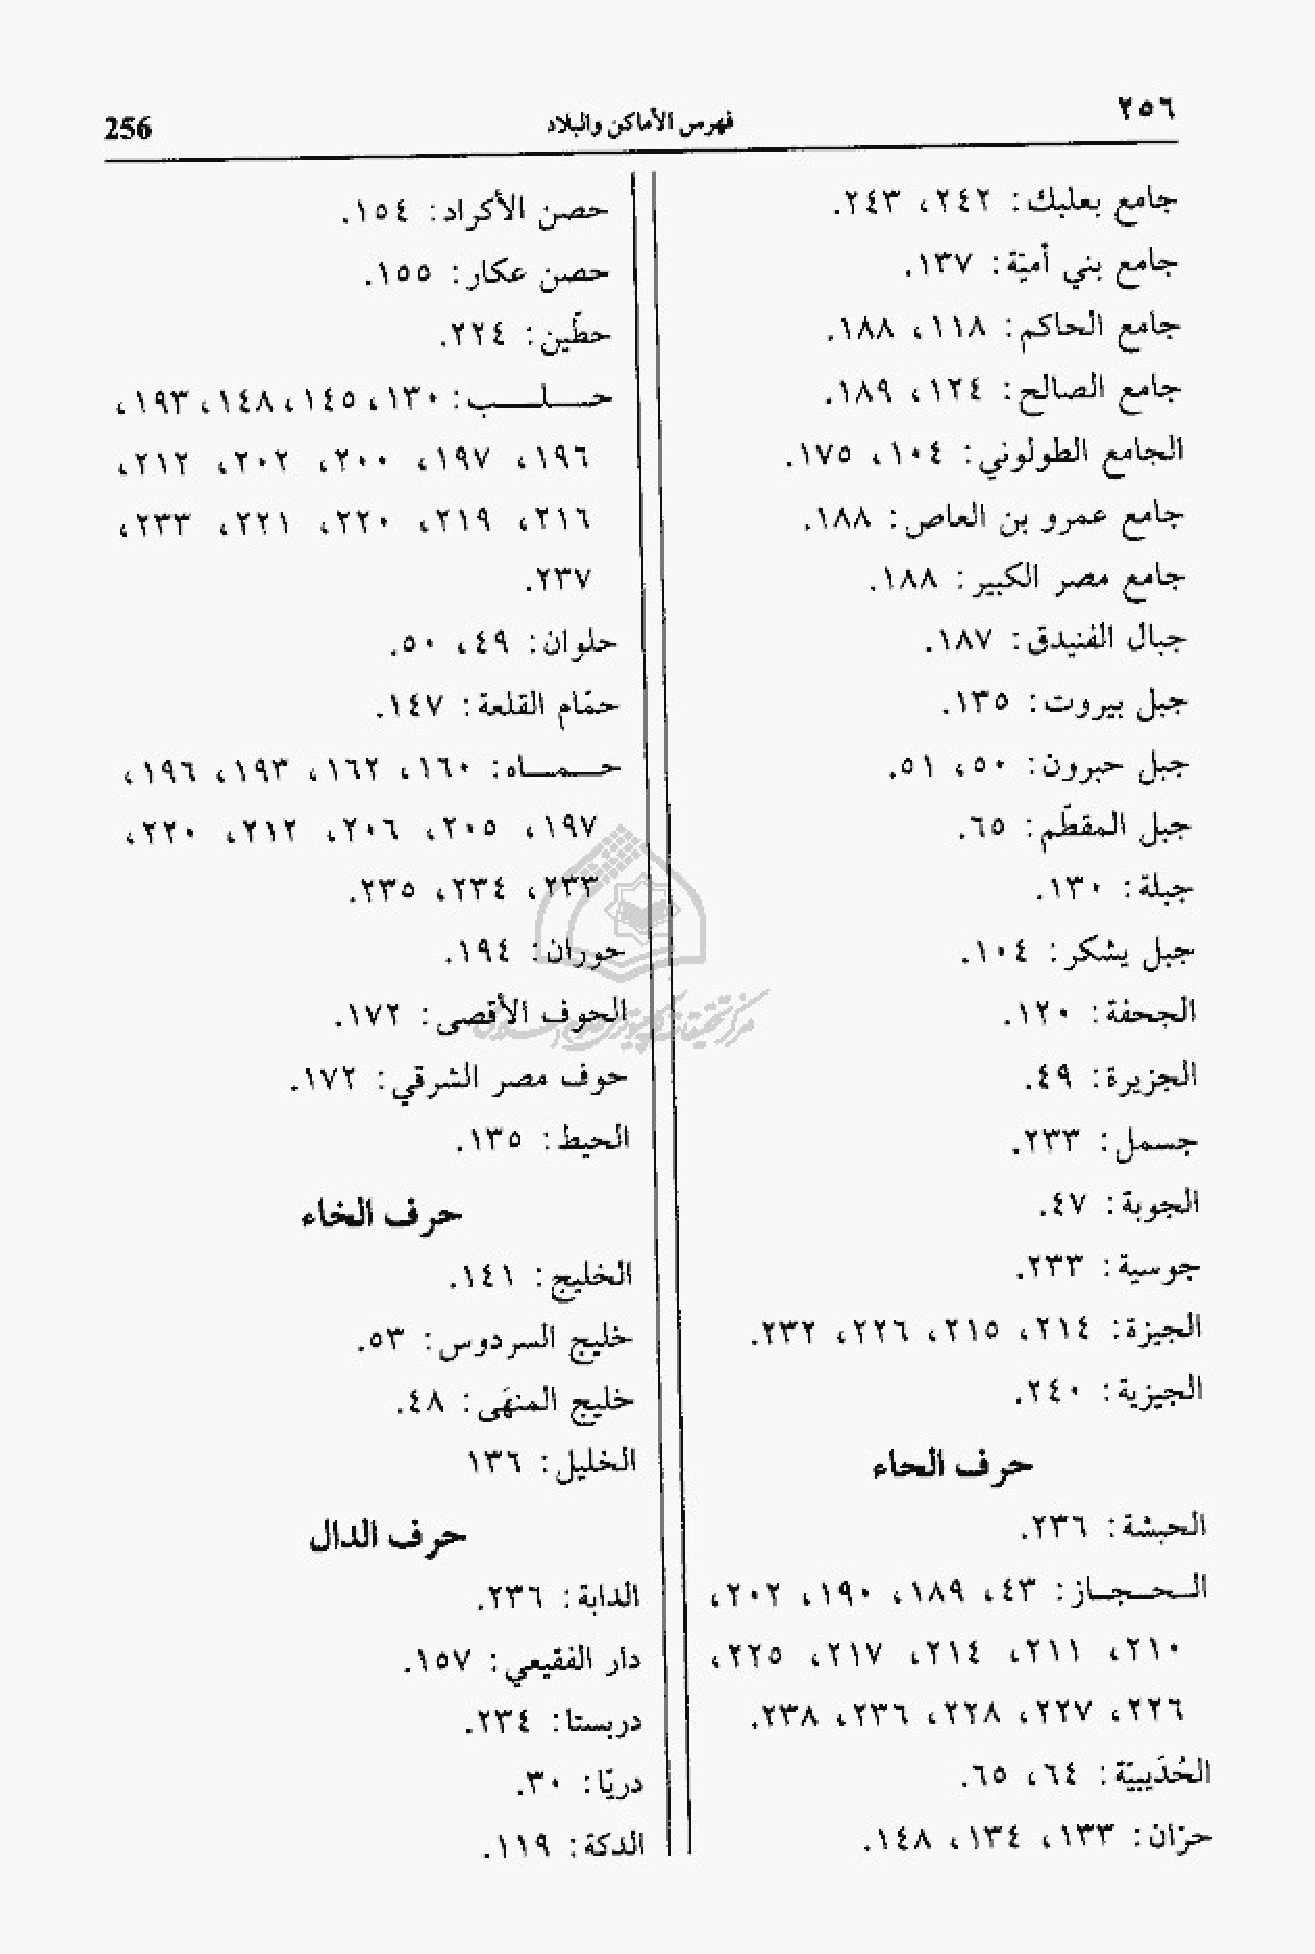 ٢٥٦
فهرس الأماكن والبلاد
256
جامع بعلبك: ٢٤٢، ٢٤٣.
جامع بني أميّة: ١٣٧.
جامع الحاكم: ١١٨، ١٨٨.
جامع الصالح: ١٢٤، ١٨٩.
الجامع الطولوني: ١٠٤، ١٧٥.
جامع عمرو بن العاص: ١٨٨.
جامع مصر الكبير: ١٨٨.
جبال الفنيدق: ١٨٧.
جبل بيروت: ١٣٥.
جبل حبرون: ٥٠، ٥١.
جبل المقطّم: ٦٥.
جبلة: ١٣٠.
جبل يشكر: ١٠٤.
الجحفة: ١٢٠.
الجزيرة: ٤٩.
جسمل: ٢٣٣.
الجوبة: ٤٧.
جوسية: ٢٣٣.
الجيزة: ٢١٤، ٢١٥، ٢٢٦، ٢٣٢.
الجيزية: ٢٤٠.
حرف الحاء
الحبشة: ٢٣٦.
الـحـجـاز: ٤٣، ١٨٩، ١٩٠، ٢٠٢،
٢١٠، ٢١١، ٢١٤، ٢١٧، ٢٢٥،
٢٢٦، ٢٢٧، ٢٢٨، ٢٣٦، ٢٣٨.
الحُدَيبيّة: ٦٤، ٦٥.
حرّان: ١٣٣، ١٣٤، ١٤٨.
حصن الأكراد: ١٥٤.
حصن عكار: ١٥٥.
حطّين: ٢٢٤.
حـــلـــب: ١٣٠، ١٤٥، ١٤٨، ١٩٣،
١٩٦، ١٩٧، ٢٠٠، ٢٠٢، ٢١٢،
٢١٦، ٢١٩، ٢٢٠، ٢٢١، ٢٣٣،
٢٣٧.
حلوان: ٤٩، ٥٠.
حمّام القلعة: ١٤٧.
حـــمـــاه: ١٦٠، ١٦٢، ١٩٣، ١٩٦،
١٩٧، ٢٠٥، ٢٠٦، ٢١٢، ٢٢٠،
٢٣٣، ٢٣٤، ٢٣٥.
حوران: ١٩٤.
الحوف الأقصى: ١٧٢.
حوف مصر الشرقي: ١٧٢.
الحيط: ١٣٥.
حرف الخاء
الخليج: ١٤١.
خليج السردوس: ٥٣.
خليج المنهَى: ٤٨.
الخليل: ١٣٦
حرف الدال
الدابة: ٢٣٦.
دار الفقيعي: ١٥٧.
دربستا: ٢٣٤.
دريّا: ٣٠.
الدكة: ١١٩.